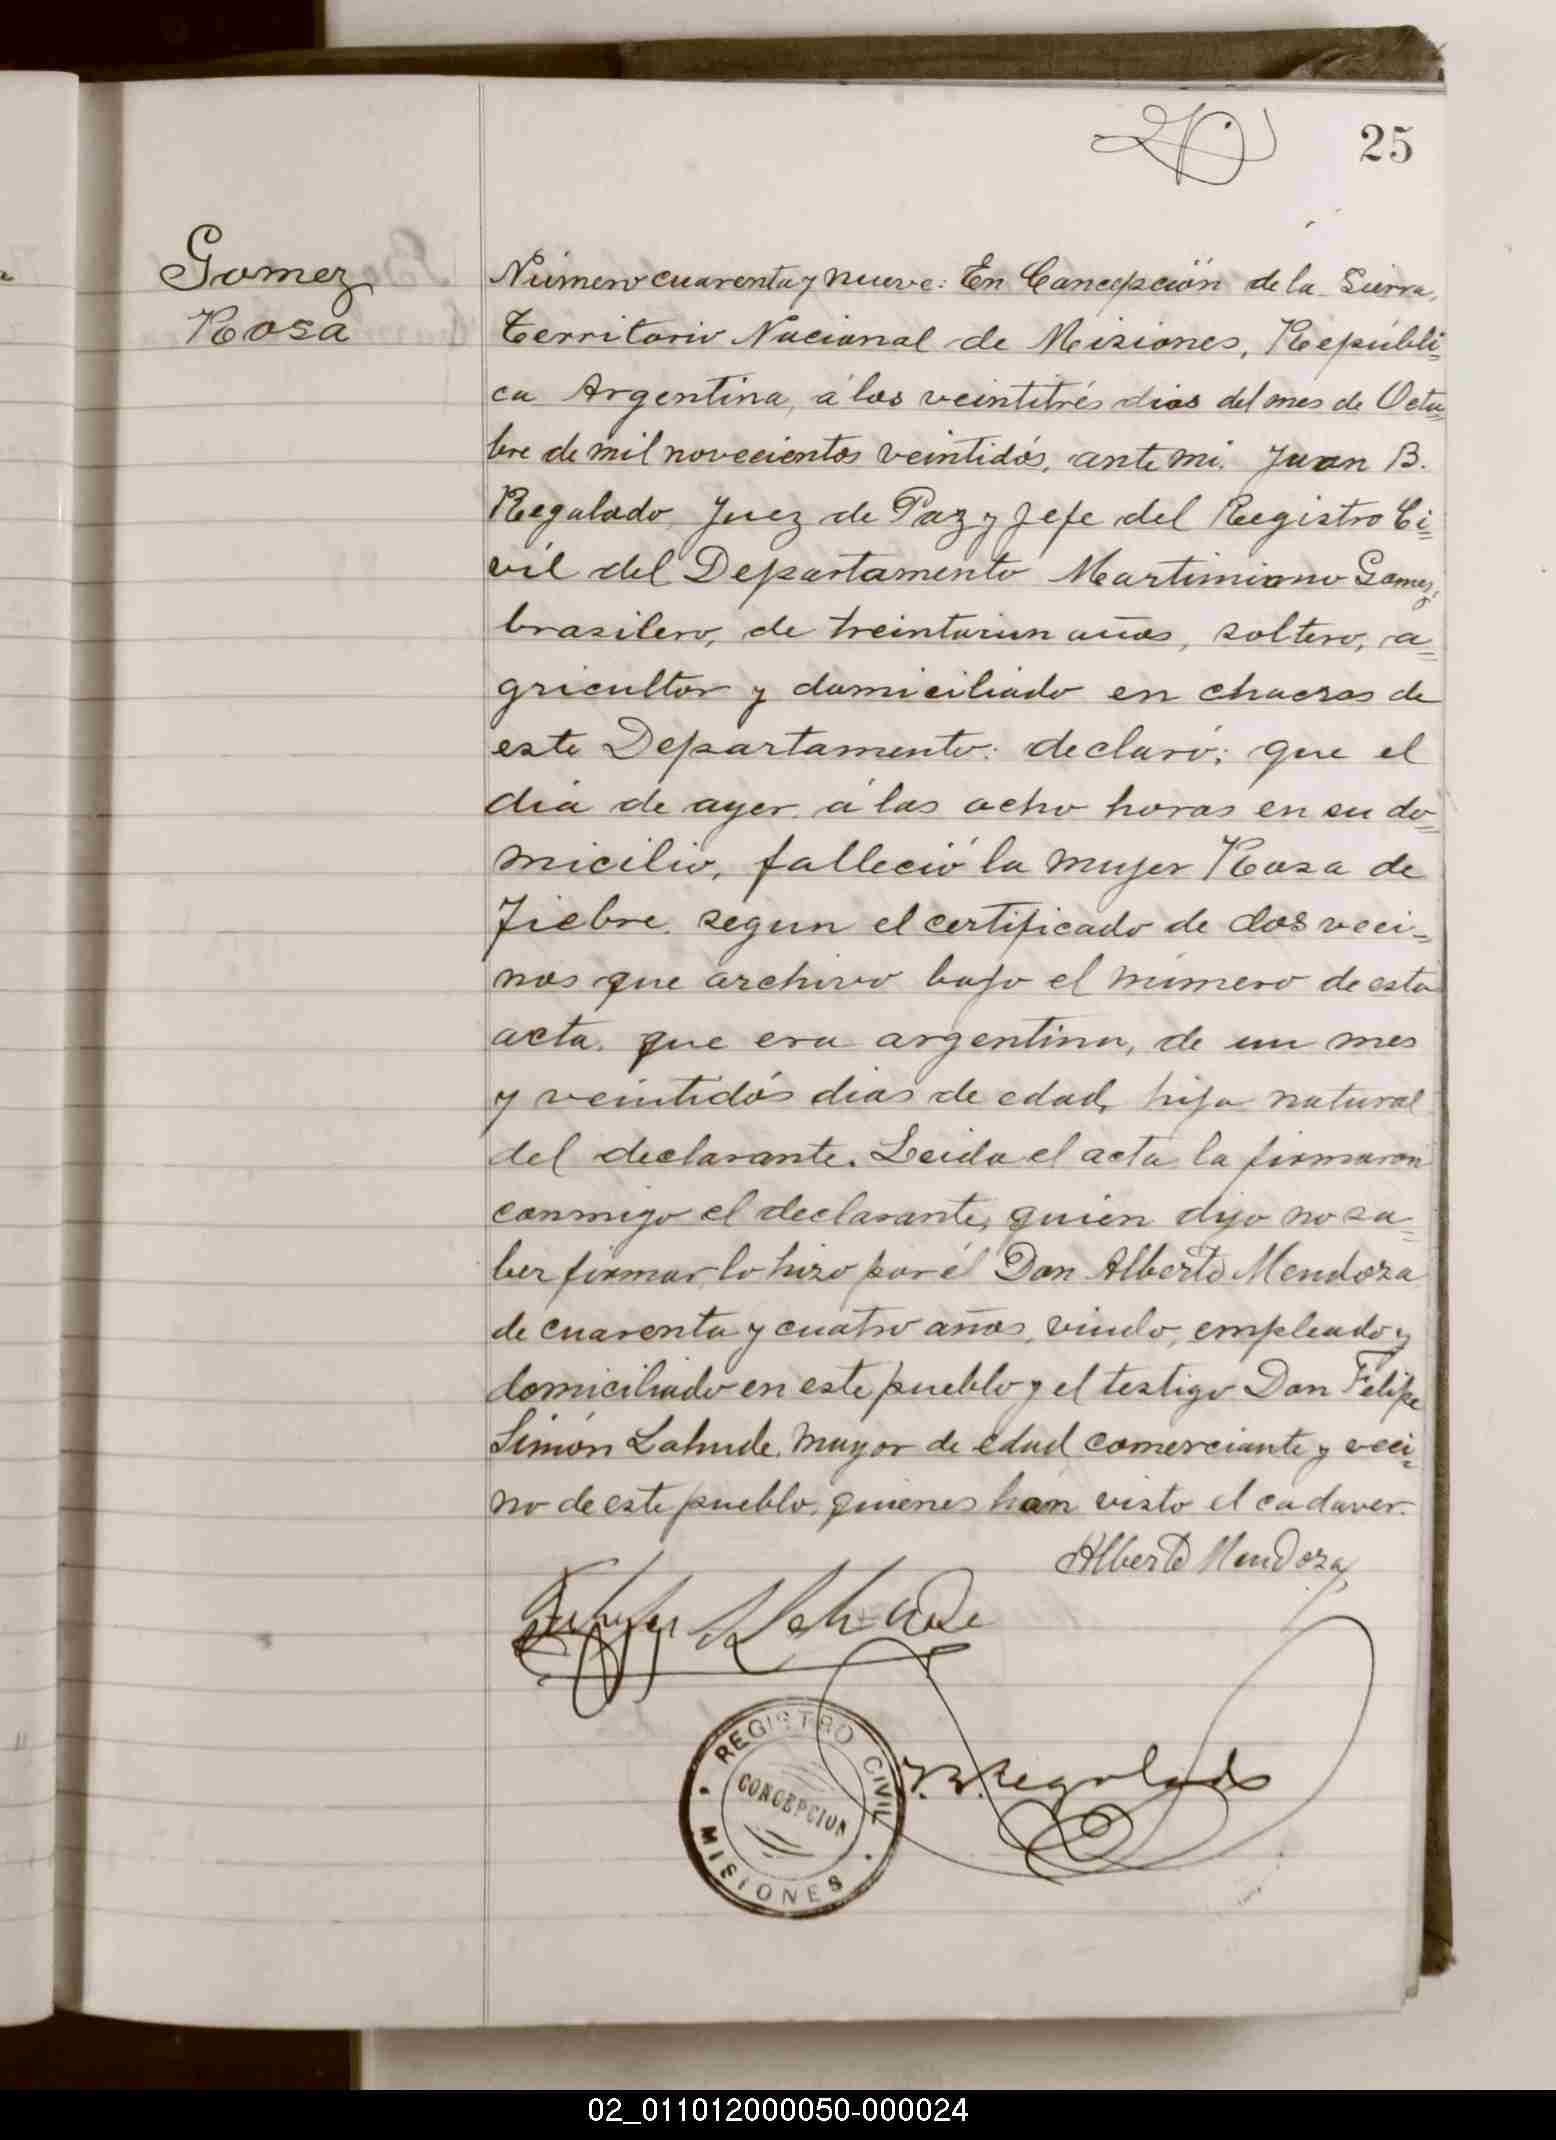 25
Gomez
Rosa
Número cuarenta y nueve: En Concepción de la Sierra,
Territorio Nacional de Misiones, Repúbli=
ca Argentina, á los veintitrés dias del mes de Octu=
bre de mil novecientos veintidós, ante mi, Juan B.
Regalado, Juez de Paz y Jefe del Registro Ci=
vil del Departamento Martimiano Gomez,
brasilero, de treintaiun años, soltero, a=
gricultor y domiciliado en chacras de
este Departamento: declaró; que el
dia de ayer, á las ocho horas en su do=
micilio, falleció la mujer Rosa de
Fiebre, segun el certificado de dos veci=
nos que archivo bajo el número de esta
acta, que era argentina, de un mes
y veintidós dias de edad, hija natural
del declarante. Leida el acta la firmaron
conmigo el declarante, quien dijo no sa=
ber firmar, lo hizo por él Don Alberto Mendoza
de cuarenta y cuatro años, viudo, empleado y
domiciliado en este pueblo y el testigo Don Felipe
Simón Lahude, mayor de edad comerciante y veci=
no de este pueblo, quienes han visto el cadaver.
Alberto Mendoza
Felipe S Lahude
J. B. Regalado
REGISTRO CIVIL
CONCEPCION
MISIONES
02_011012000050-000024